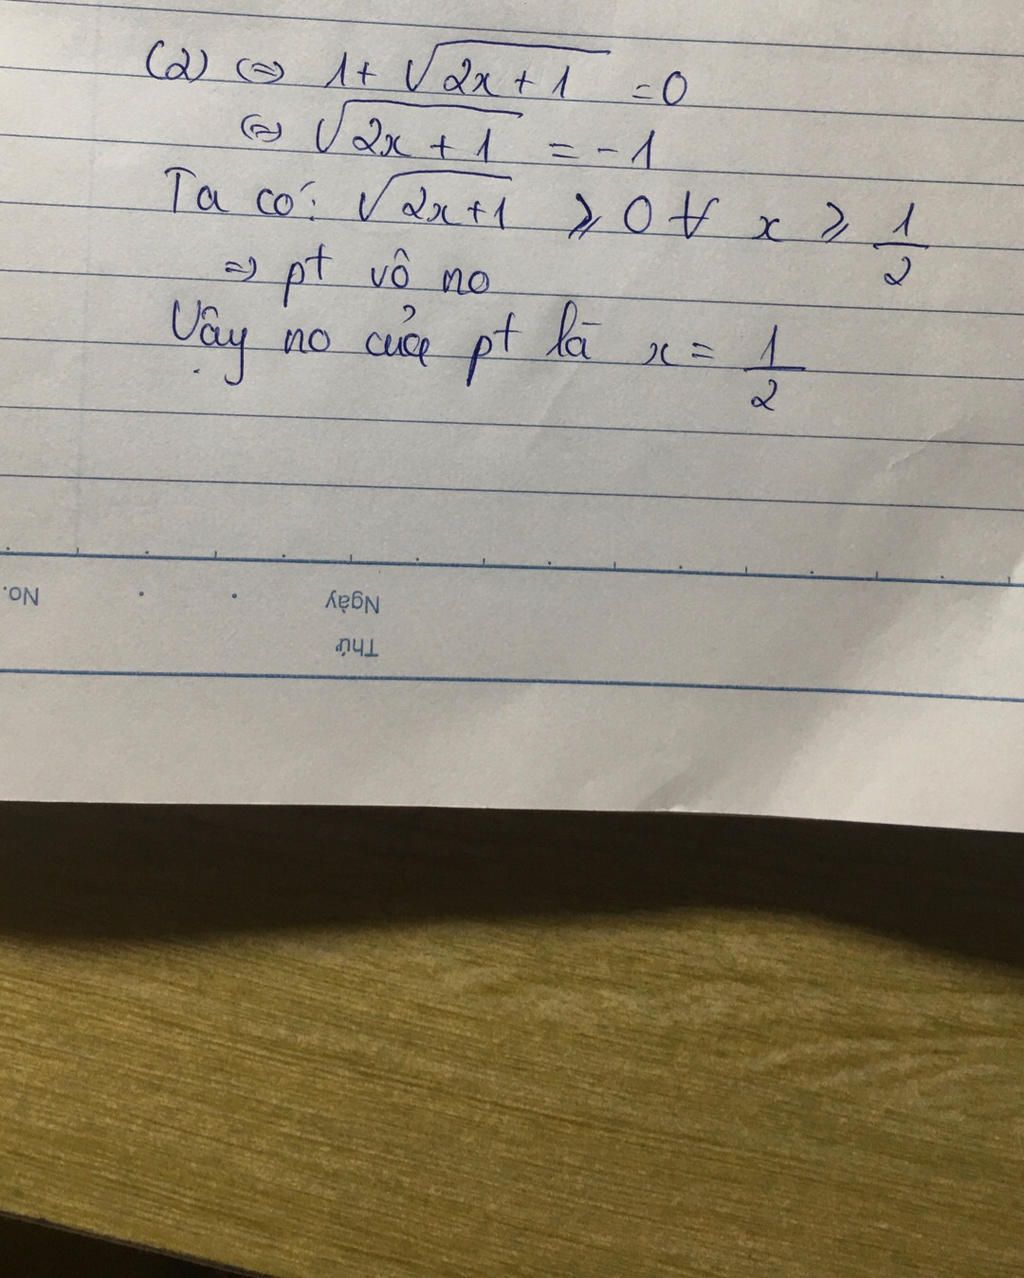 (2) ⇔ 1 + √(2x + 1) = 0
⇔ √(2x + 1) = -1
Ta có: √(2x+1) ⩾ 0 ∀ x ⩾ 1/2
⇒ pt vô no
Vậy no của pt là x = 1/2
No.
Ngày
Thứ